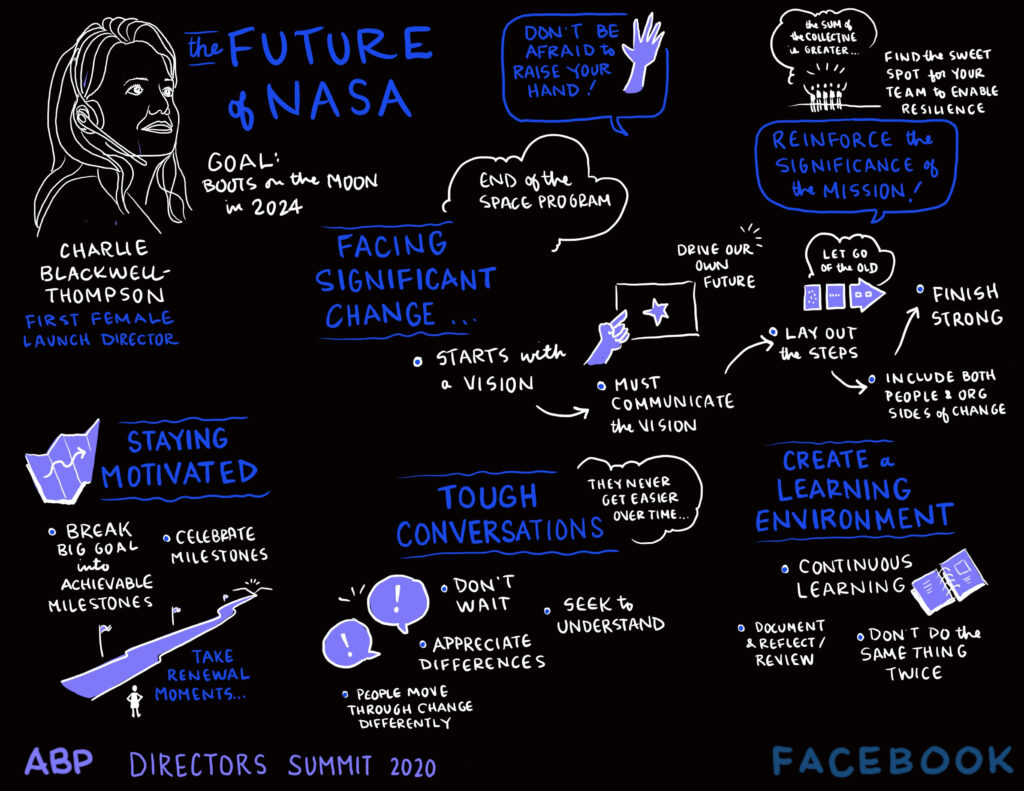 the FUTURE
of NASA
GOAL:
BOOTS on the MOON
in 2024
CHARLIE
BLACKWELL-
THOMPSON
FIRST FEMALE
LAUNCH DIRECTOR
DON'T BE
AFRAID to
RAISE YOUR
HAND!
the SUM of
the COLLECTIVE
is GREATER...
FIND the SWEET
SPOT for YOUR
TEAM to ENABLE
RESILIENCE
REINFORCE the
SIGNIFICANCE of
the MISSION!
END of the
SPACE PROGRAM
FACING
SIGNIFICANT
CHANGE...
STARTS with
a VISION
DRIVE OUR
OWN
FUTURE
MUST
COMMUNICATE
the VISION
LET GO
OF the OLD
LAY OUT
the STEPS
FINISH
STRONG
INCLUDE BOTH
PEOPLE & ORG
SIDES of CHANGE
STAYING
MOTIVATED
BREAK
BIG GOAL
into
ACHIEVABLE
MILESTONES
CELEBRATE
MILESTONES
TAKE
RENEWAL
MOMENTS...
TOUGH
CONVERSATIONS
THEY NEVER
GET EASIER
OVER TIME...
!
!
DON'T
WAIT
SEEK to
UNDERSTAND
APPRECIATE
DIFFERENCES
PEOPLE MOVE
THROUGH CHANGE
DIFFERENTLY
CREATE a
LEARNING
ENVIRONMENT
CONTINUOUS
LEARNING
DOCUMENT
& REFLECT/
REVIEW
DON'T DO the
SAME THING
TWICE
ABP DIRECTORS SUMMIT 2020
FACEBOOK